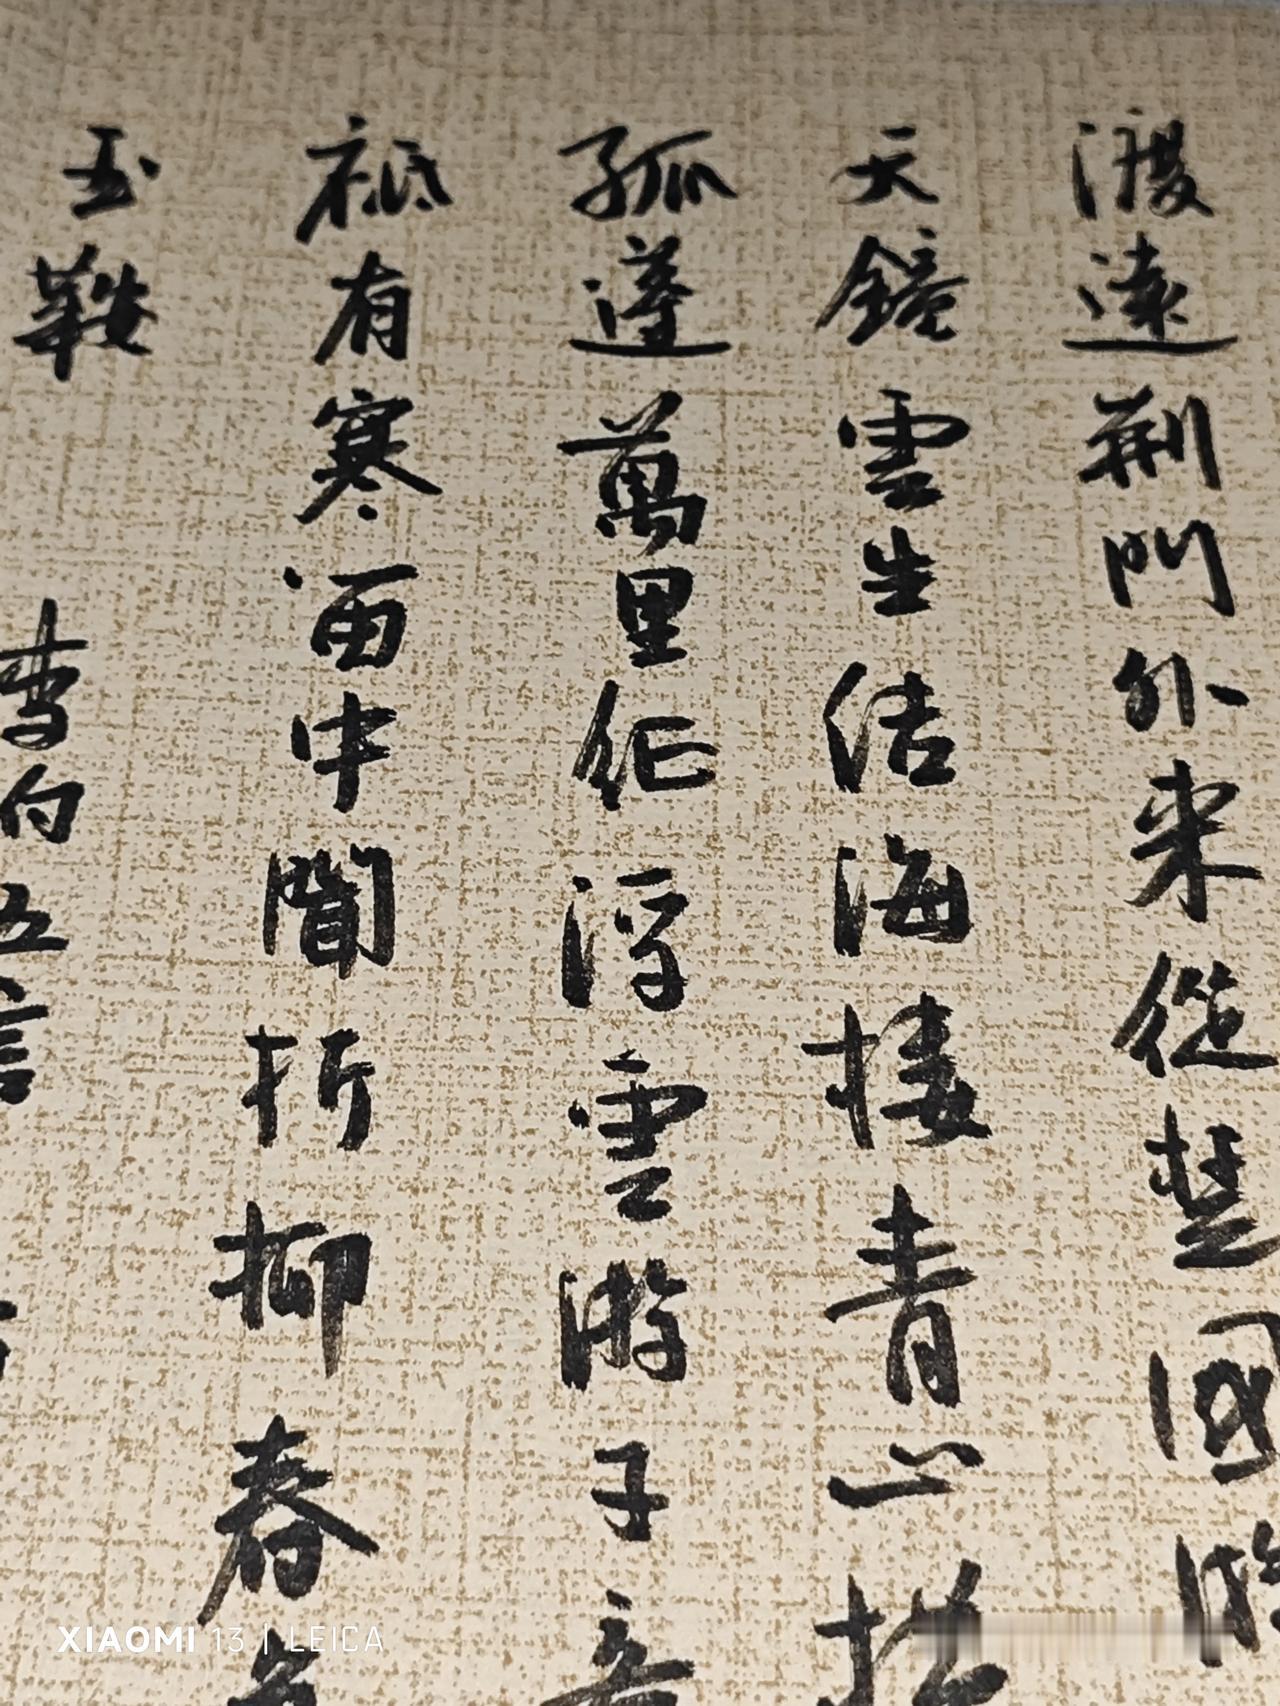 渡遠荊門外来從楚國游
天鏡雲生结海楼青山横
孤蓬萬里征浮雲游子意
祗有寒笛中聞折柳春色
玉鞍
李白五言
XIAOMI 13 | LEICA